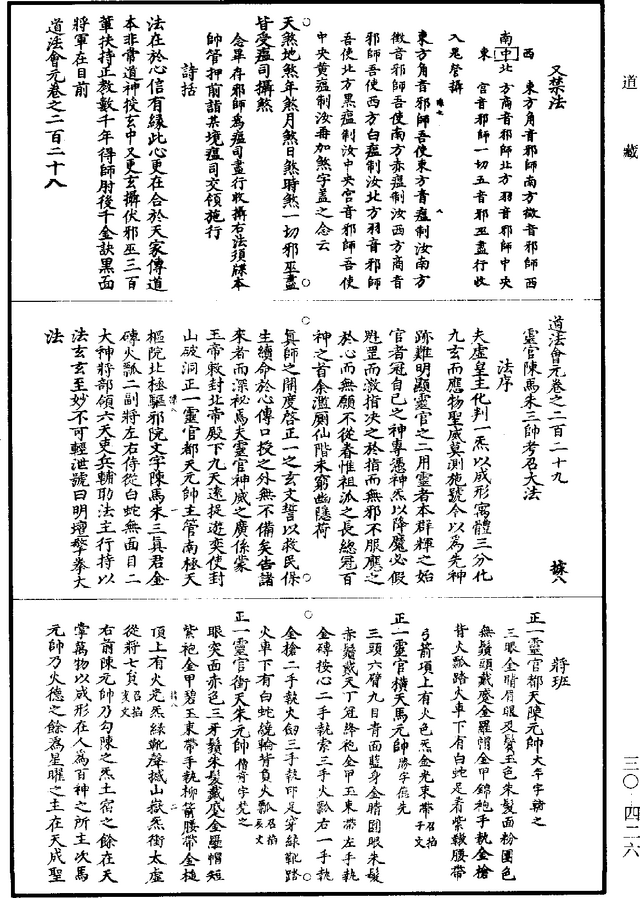 道藏
又禁法
西 東方角音邪師南方徵音邪師西
南中北 方商音邪師北方羽音邪師中央
東 宮音邪師一切五音邪巫盡行收
入鬼營攝
東方角音邪師吾使東方青瘟制汝南方
徵音邪師吾使南方赤瘟制汝西方商音
邪師吾使西方白瘟制汝北方羽音邪師
吾使北方黑瘟制汝中央宮音邪師吾使
中央黃瘟制汝毎加煞字蓋之念云
天煞地煞年煞月煞日煞時煞一切邪巫盡
皆受瘟司攝煞
念畢存邪師為瘟司盡行收攝右法須牒本
帥管押前詣某境瘟司交領施行
詩括
法在於心信有緣此心更在合於天家傳道
本非常道神授玄中又更玄攝伏邪巫三百
輩扶持正教數千年得師肘後千金訣黑面
將軍在目前
道法會元卷之二百二十八
道法會元卷之二百二十九
靈官陳馬朱三帥考召大法
法序
夫虛皇主化判一炁以成形寓體三分化
九玄而應物聖威莫測施號令以為先神
跡難明顯靈官之二用靈者本群輝之始
官者冠自己之神專憑神炁以降魔必假
魁罡而激指決之於指而無邪不服應之
於心而無願不從眷惟祖派之長總冠百
神之首余濫厠仙階未窮幽隱荷
真師之開度啓正一之玄文誓以救民保
生續命於心傳口授之外無不備矣告諸
來者而深祕焉夫靈官神威之廣係蒙
玉帝敕封北帝殿下九天遠捉遊奕使封
山破洞正一靈官都天元帥主管南極天
樞院北極驅邪院文字陳馬朱三真君金
磚火瓢二副將左右侍從白蛇無面目二
大神將部領六天吏兵輔助法主行持以
法玄玄至妙不可輕泄號曰明壇擎拳大
法
將班
正一靈官都天陳元帥
三眼金睛眉眼及鬢玉色朱髮面粉團色
無鬚頭戴磨金羅帽金甲錦袍手執金槍
背火瓢踏火車下有白蛇足着紫靴腰帶
弓箭項上有火色炁金光束帶
正一靈官橫天馬元帥
三頭六臂九目青面藍身金睛圓眼朱髮
赤鬚戴天丁冠絳袍金甲玉束帶左手執
金磚按心二手執索三手火瓢右一手執
金槍二手執火劒三手執印足穿綠靴踏
火車下有白蛇繞輪背負火瓢
正一靈官衝天朱元帥
眼突面赤色三牙鬚朱髮戴磨金羅帽短
紫袍金甲碧玉束帶手執柳箭腰帶金槌
頂上有火光炁綠靴聲撼山嶽炁衝太虛
從將七負
右前陳元帥乃勾陳之炁土宿之餘在天
掌萬物以成形在人為百神之所主次馬
元帥乃火德之餘為星曜之主在天成聖
三〇·四二六